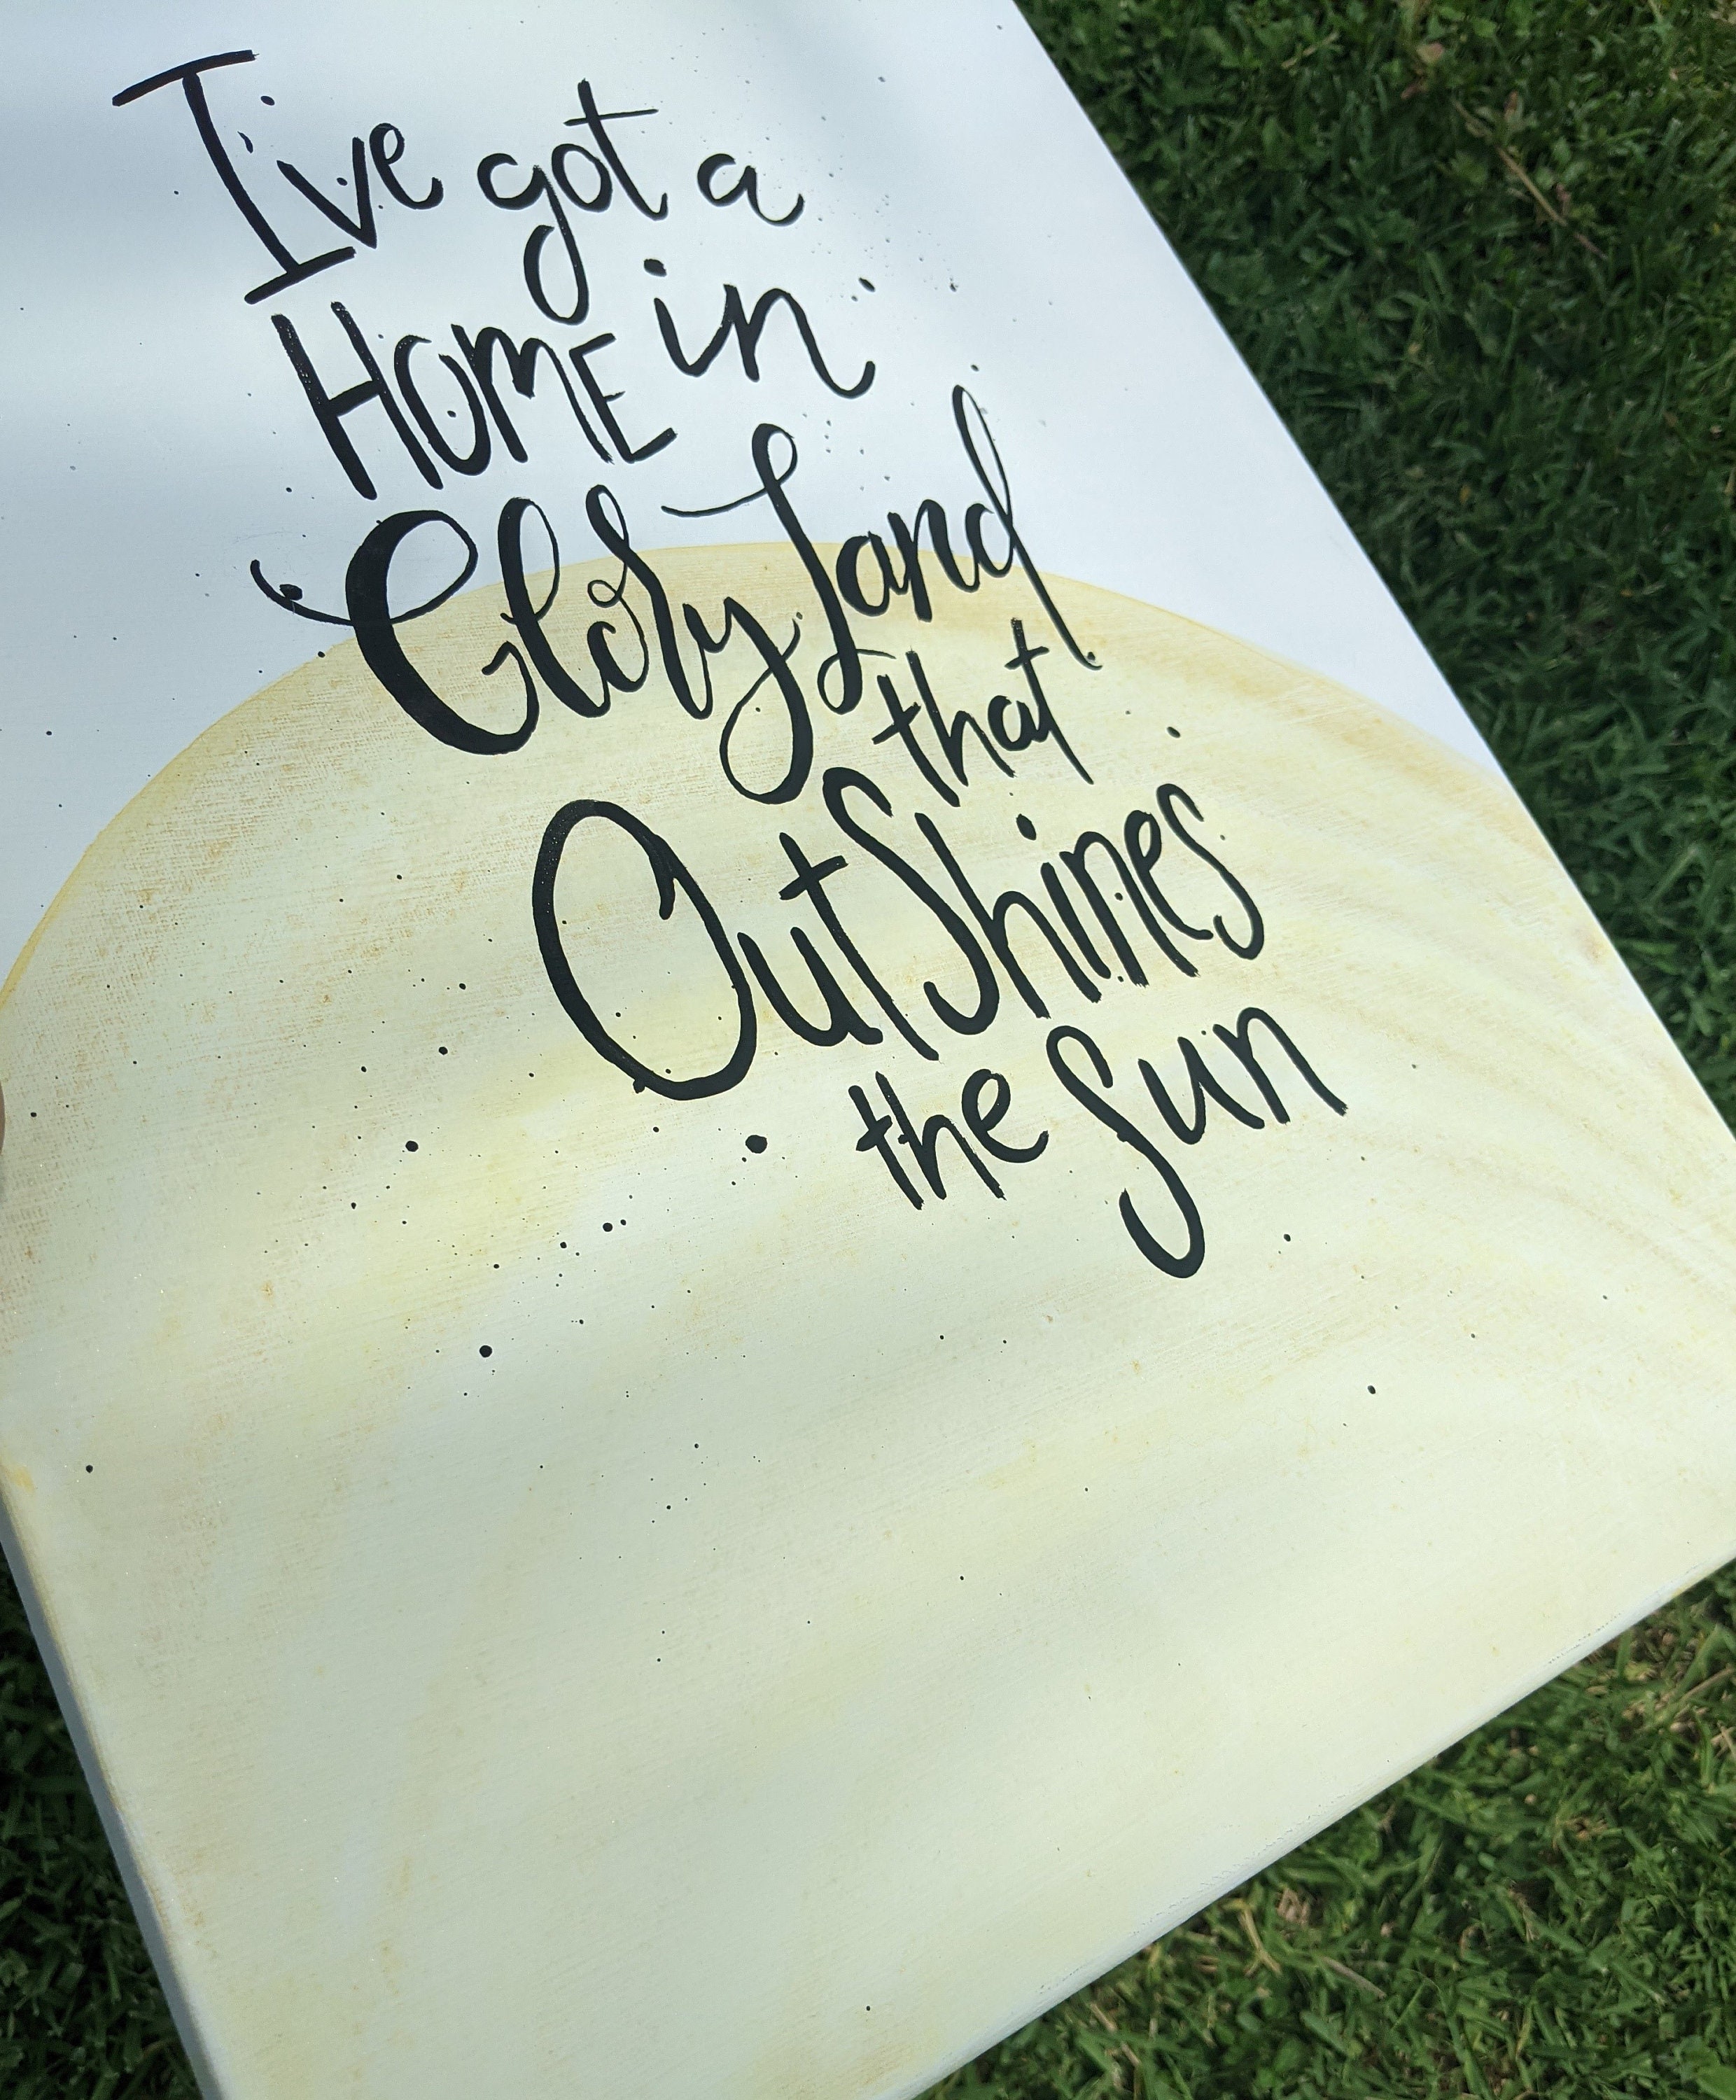 I've got a
HOME in
Glory Land
that
OutShines
the Sun